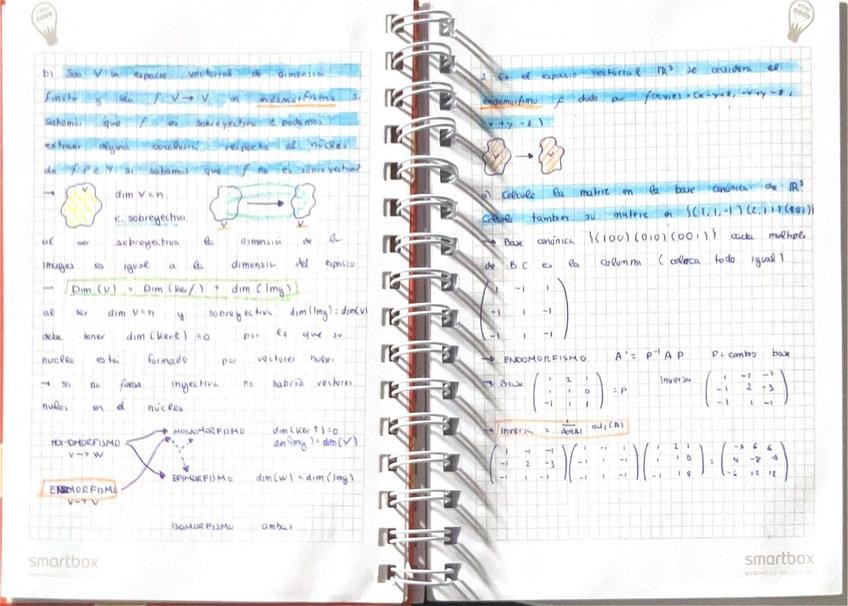 b) Sea V un espacio vectorial de dimensión
finita y sea f V→V un endomorfismo si
sabemos que f es sobreyectiva ¿ podemos
extraer alguna conclusión respecto al núcleo
de f ? ¿ Y si sabemos que f no es sobreyectiva?
→ V dim V = n
e sobreyectiva
V V
al ser sobreyectiva la dimensión de la
imagen es igual a la dimensión del espacio
→ Dim (V) = Dim (ker f) + dim (Img)
al ser dim V = n y sobreyectiva dim(Img) = dim(V)
debe tener dim (kerf) = 0 por lo que su
nucleo está formado por vectores nulos.
→ si no fuese inyectiva no habría vectores
nulos en el núcleo
MONOMORFISMO dim(ker f) = 0
dim(Img) = dim(V)
MORFISMO
V → W
EPIMORFISMO dim(W) = dim(Img)
ENDOMORFISMO
V → V
ISOMORFISMO ambas
smartbox
2. En el espacio vectorial ℝ³ se considera el
endomorfismo f dado por f(x,y,z) = (x-y+z, -x+y-z,
x+y-z)
→
a) Calcule la matriz en la base canónica de ℝ³
Calcule tambien su matriz en {(1,1,-1) (2,1,1) (1,0,1)}
→ Base canónica {(100) (010) (001)} cada multiplo
de B.C es la columna (coloca todo igual)
1 -1 1
-1 1 -1
1 1 -1
→ ENDOMORFISMO A' = P⁻¹ A P P = cambio base
→ Base ( 1 2 1 Inversa ( 1 -1 -1
1 1 0 ) = P -1 2 -3
-1 1 1 1 1 -1 )
→ Inversa = 1/det(A) adj(A)
smartbox